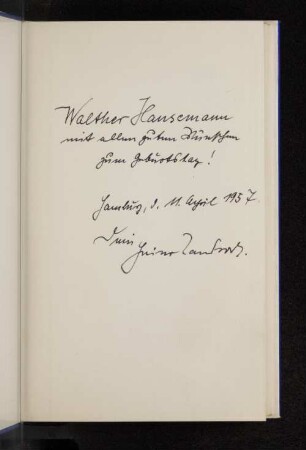 Walther Hansemann
mit allen guten Wünschen
zum Geburtstag!
Hamburg, d. 11. April 1957.
Dein
Heinz